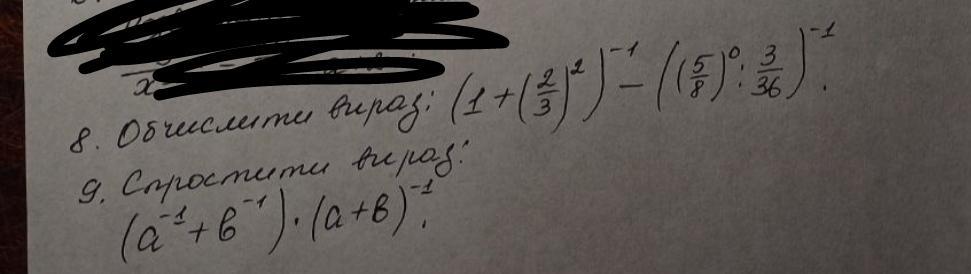 8. Обчислити вираз: (1 + (2/3)²)⁻¹ − ((5/8)⁰ : 3/36)⁻¹.
9. Спростити вираз:
(a⁻¹ + b⁻¹) · (a + b)⁻¹.